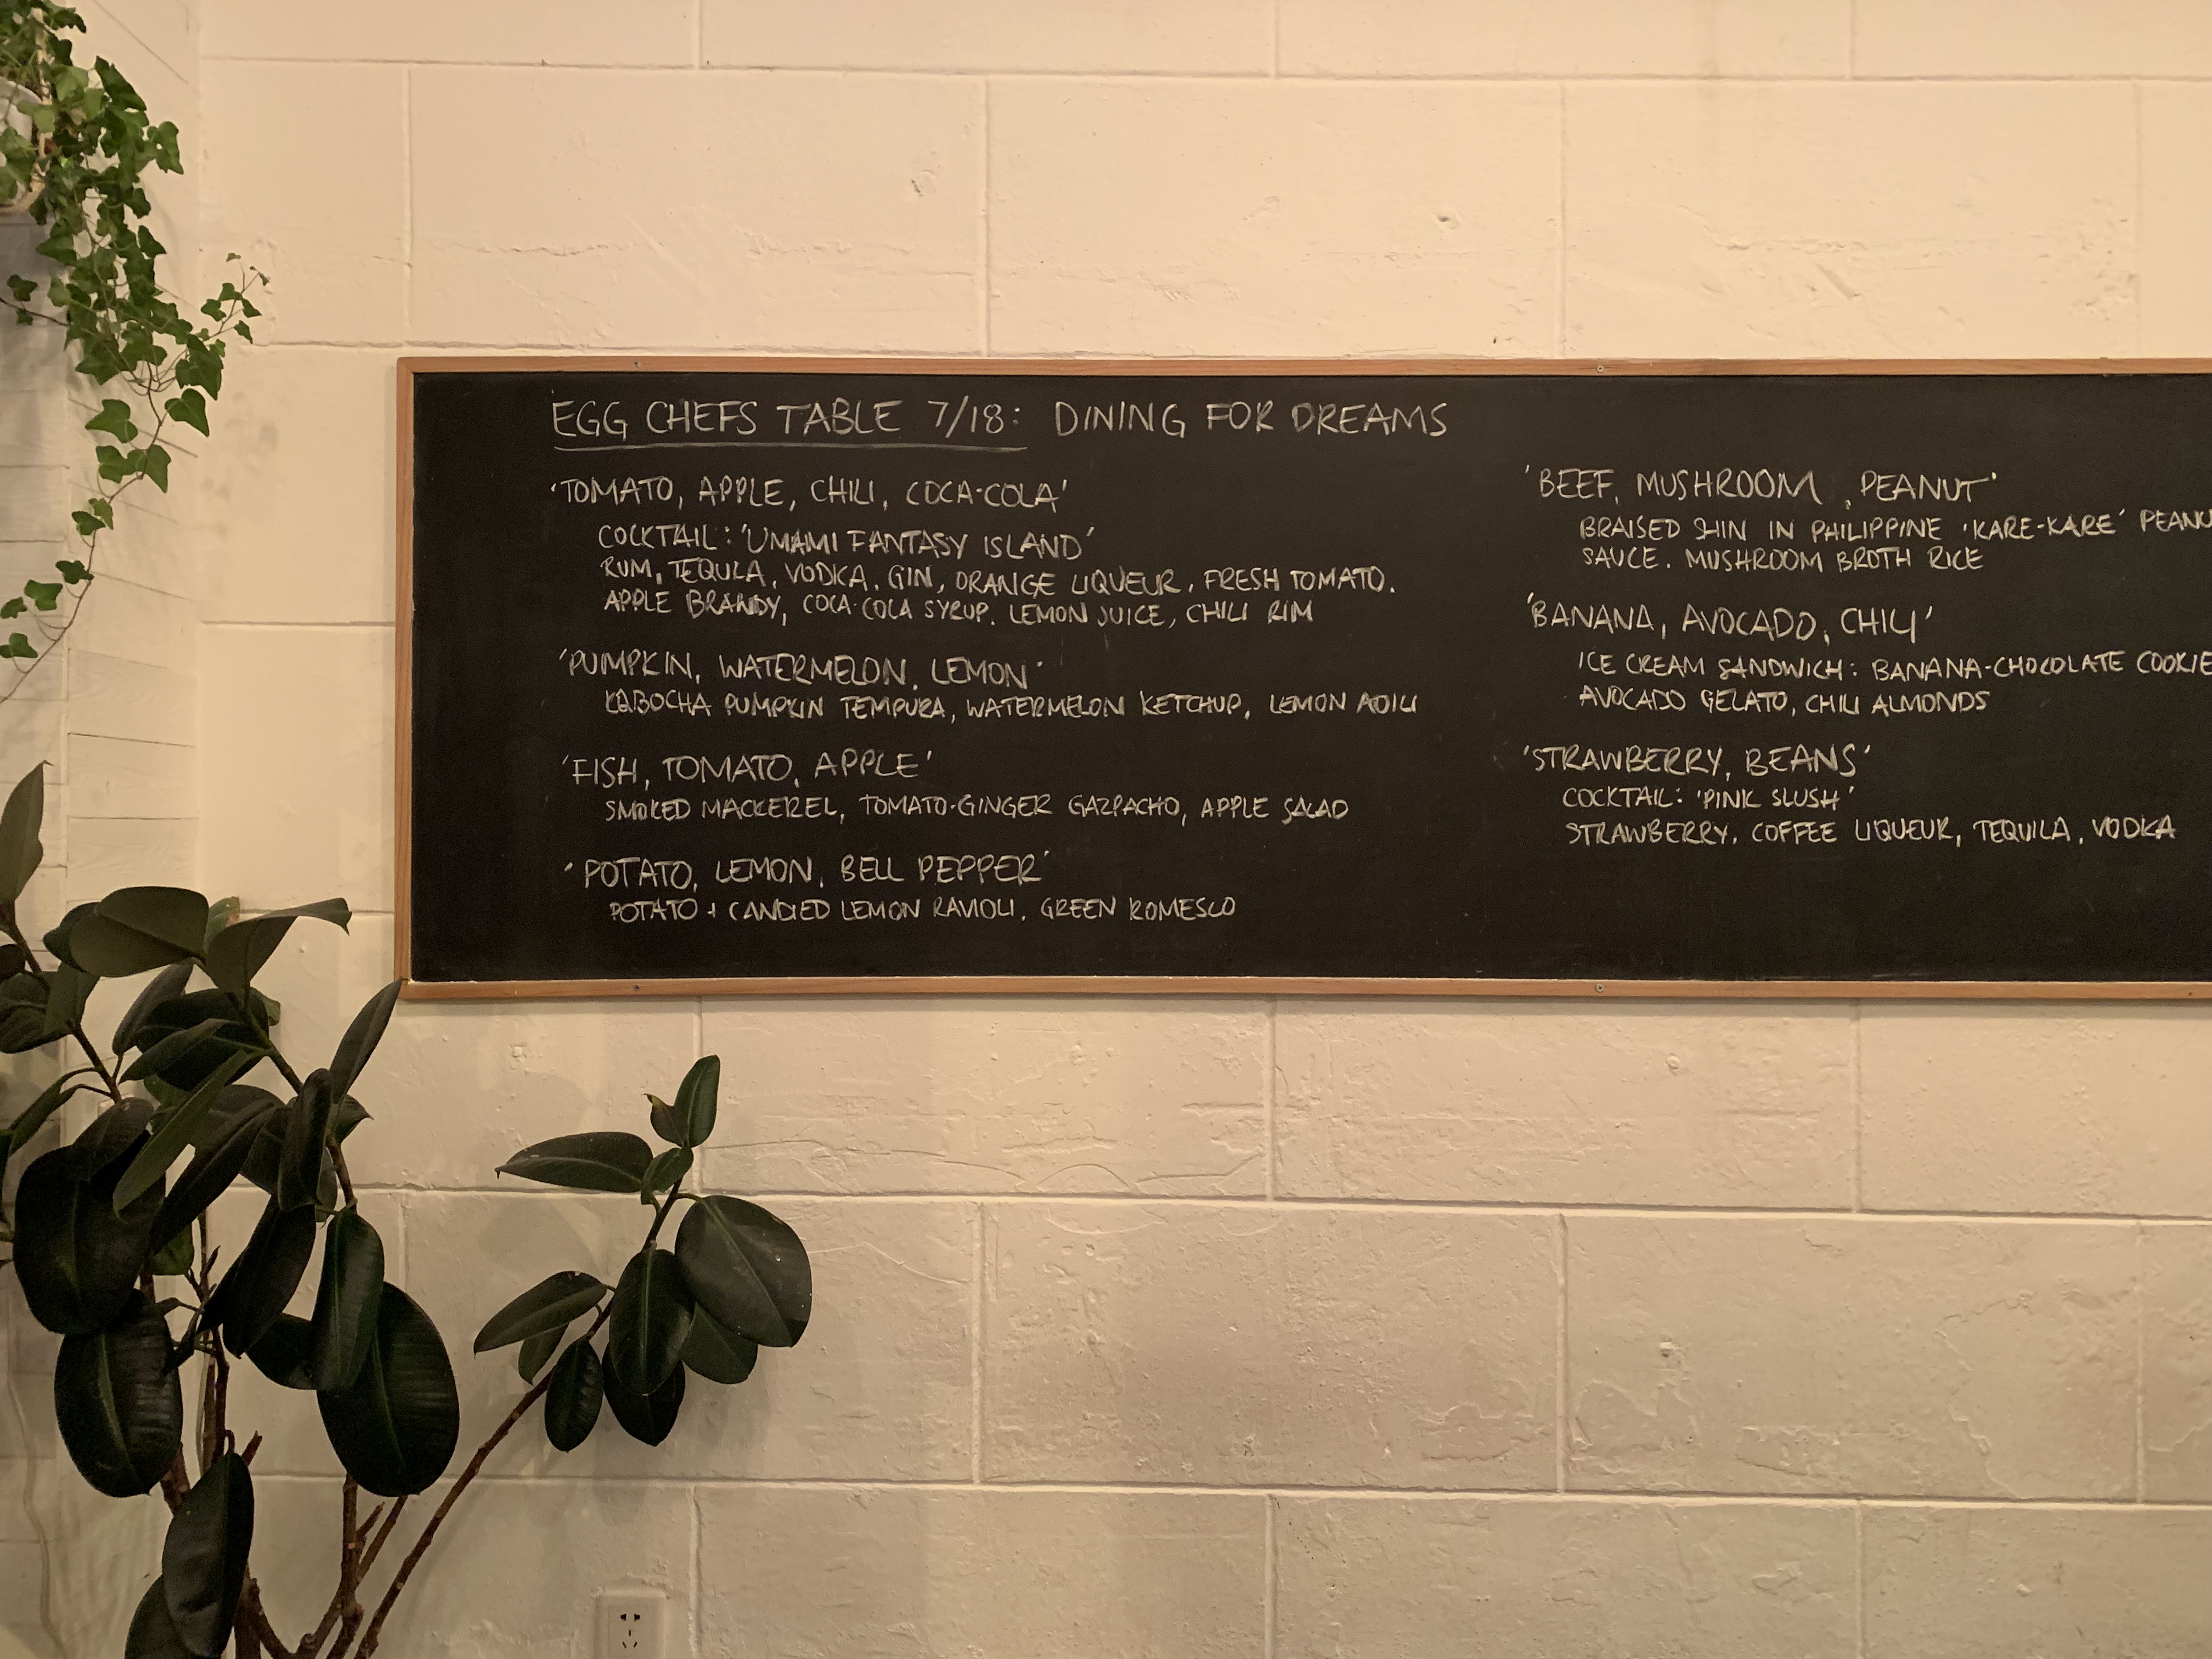 EGG CHEFS TABLE 7/18: DINING FOR DREAMS
'TOMATO, APPLE, CHILI, COCA-COLA'
COCKTAIL: 'UMAMI FANTASY ISLAND'
RUM, TEQULA, VODKA, GIN, ORANGE LIQUEUR, FRESH TOMATO.
APPLE BRANDY, COCA-COLA SYRUP. LEMON JUICE, CHILI RIM
'PUMPKIN, WATERMELON, LEMON'
KABOCHA PUMPKIN TEMPURA, WATERMELON KETCHUP, LEMON AOILI
'FISH, TOMATO, APPLE'
SMOKED MACKEREL, TOMATO-GINGER GAZPACHO, APPLE SALAD
'POTATO, LEMON, BELL PEPPER'
POTATO + CANDIED LEMON RAVIOLI, GREEN ROMESCO
'BEEF, MUSHROOM, PEANUT'
BRAISED SHIN IN PHILIPPINE 'KARE-KARE' PEANU
SAUCE. MUSHROOM BROTH RICE
'BANANA, AVOCADO, CHILI'
ICE CREAM SANDWICH: BANANA-CHOCOLATE COOKIE
AVOCADO GELATO, CHILI ALMONDS
'STRAWBERRY, BEANS'
COCKTAIL: 'PINK SLUSH'
STRAWBERRY, COFFEE LIQUEUR, TEQUILA, VODKA